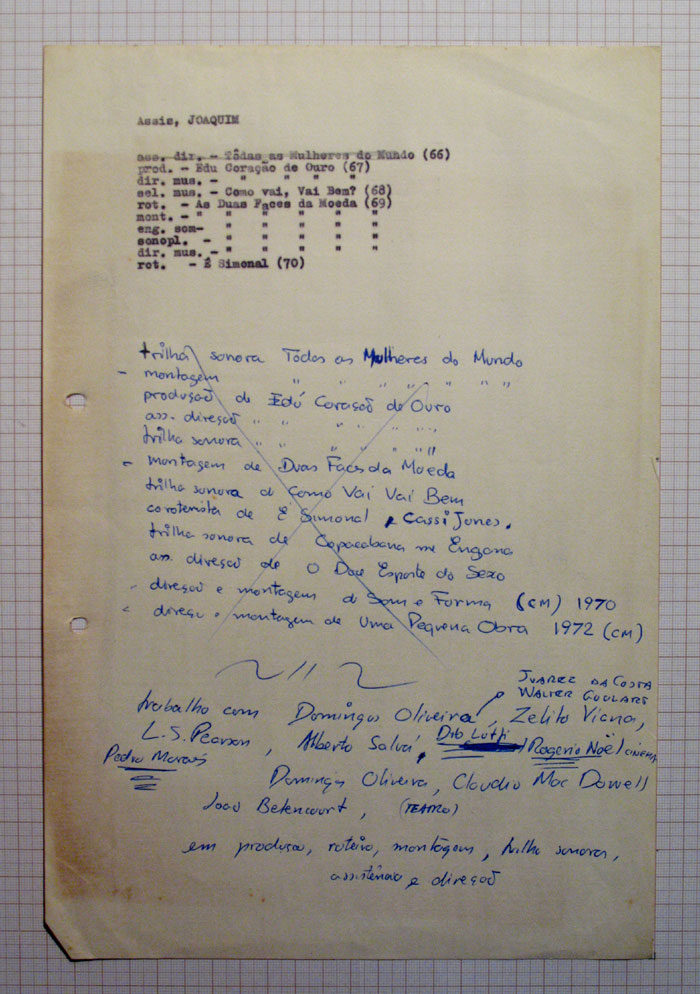 Assis, JOAQUIM
ass. dir. - Tôdas as Mulheres do Mundo (66)
prod. - Edu Coração de Ouro (67)
dir. mus. - " " " "
sel. mus. - Como vai, Vai Bem? (68)
rot. - As Duas Faces da Moeda (69)
mont. - " " " " " "
eng. som- " " " " "
sonopl. - " " " " "
dir. mus. - " " " " "
rot. - É Simonal (70)
trilha sonora Todas as Mulheres do Mundo
- montagem " " " " " " "
produção de Edú Coração de Ouro
ass. direção " " " " " "
trilha sonora " " " " " "
- montagem de Duas Faces da Moeda
trilha sonora de Como Vai Vai Bem
coroteirista de E Simonal e Cassi Jones.
trilha sonora de Copacabana me Engana
ass. direção de O Doce Esporte do Sexo
- direção e montagem de Som e Forma (CM) 1970
- direçã e montagem de Uma Pequena Obra 1972 (CM)
JUAREZ DA COSTA
WALTER GOULART
trabalho com Domingos Oliveira, Zelito Viana,
L.S. Pearson, Alberto Salvá, Dib Lutfi / Rogerio Noël / CINEMA
Pedro Moraes
Domingos Oliveira, Claudio Mac Dowell
João Betencourt, (TEATRO)
em produção, roteiro, montagem, trilha sonora,
assistência e direção